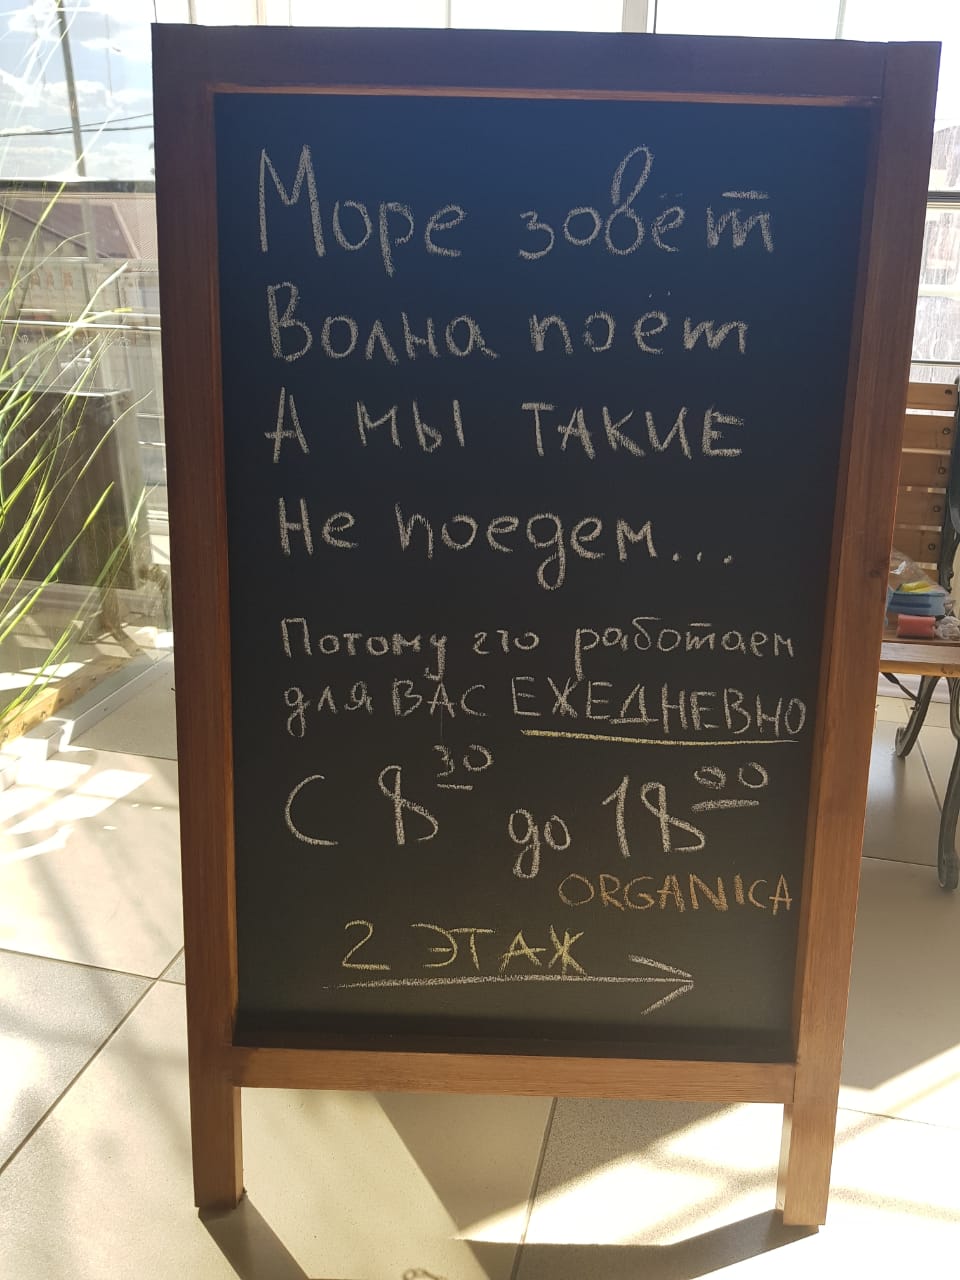 Море зовёт
Волна поёт
А мы ТАКИЕ
Не поедем...
Потому что работаем
для ВАС ЕЖЕДНЕВНО
С 8 30 до 18 00
ORGANICA
2 ЭТАЖ